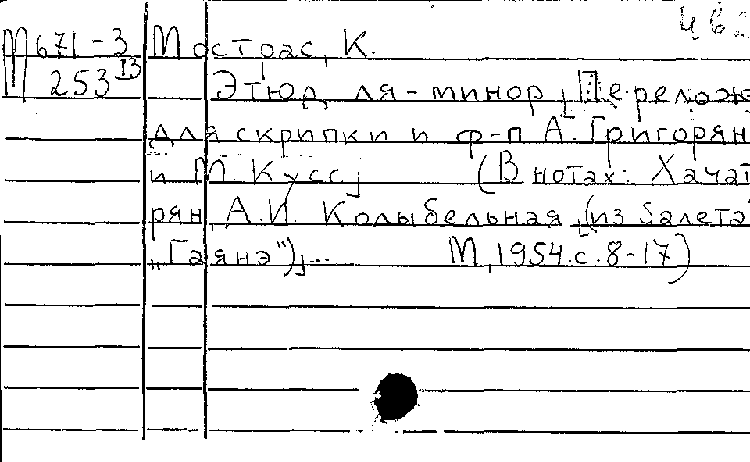 М671-3 Мострас, К.
253 IВ Этюд ля-минор [Перелож
для скрипки и ф-п А. Григорян
и М. Кусс] (В нотах: Хачат
рян, А.И. Колыбельная [(из балета
„Гаянэ")]... М, 1954. с. 8-17)